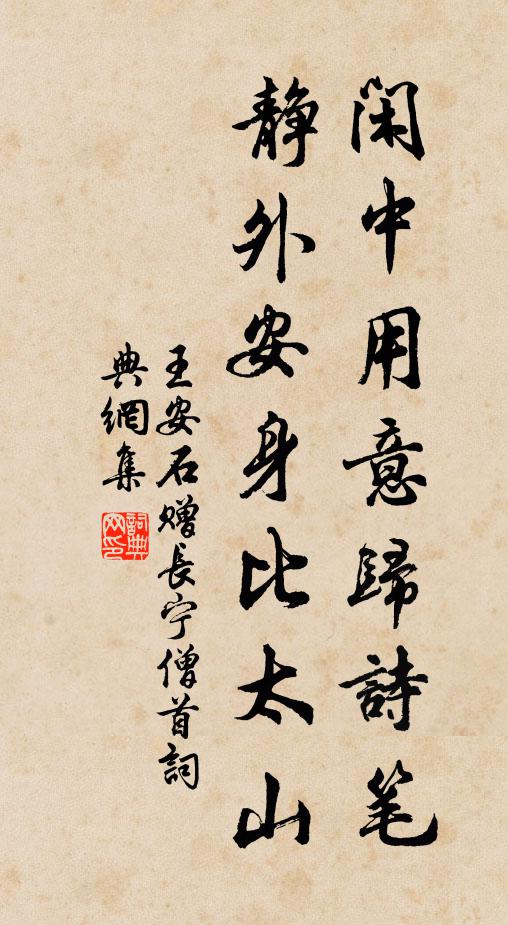 闲中用意歸詩笔
静外安身比太山
王安石赠長宁僧首詞
典網集
詞典网印